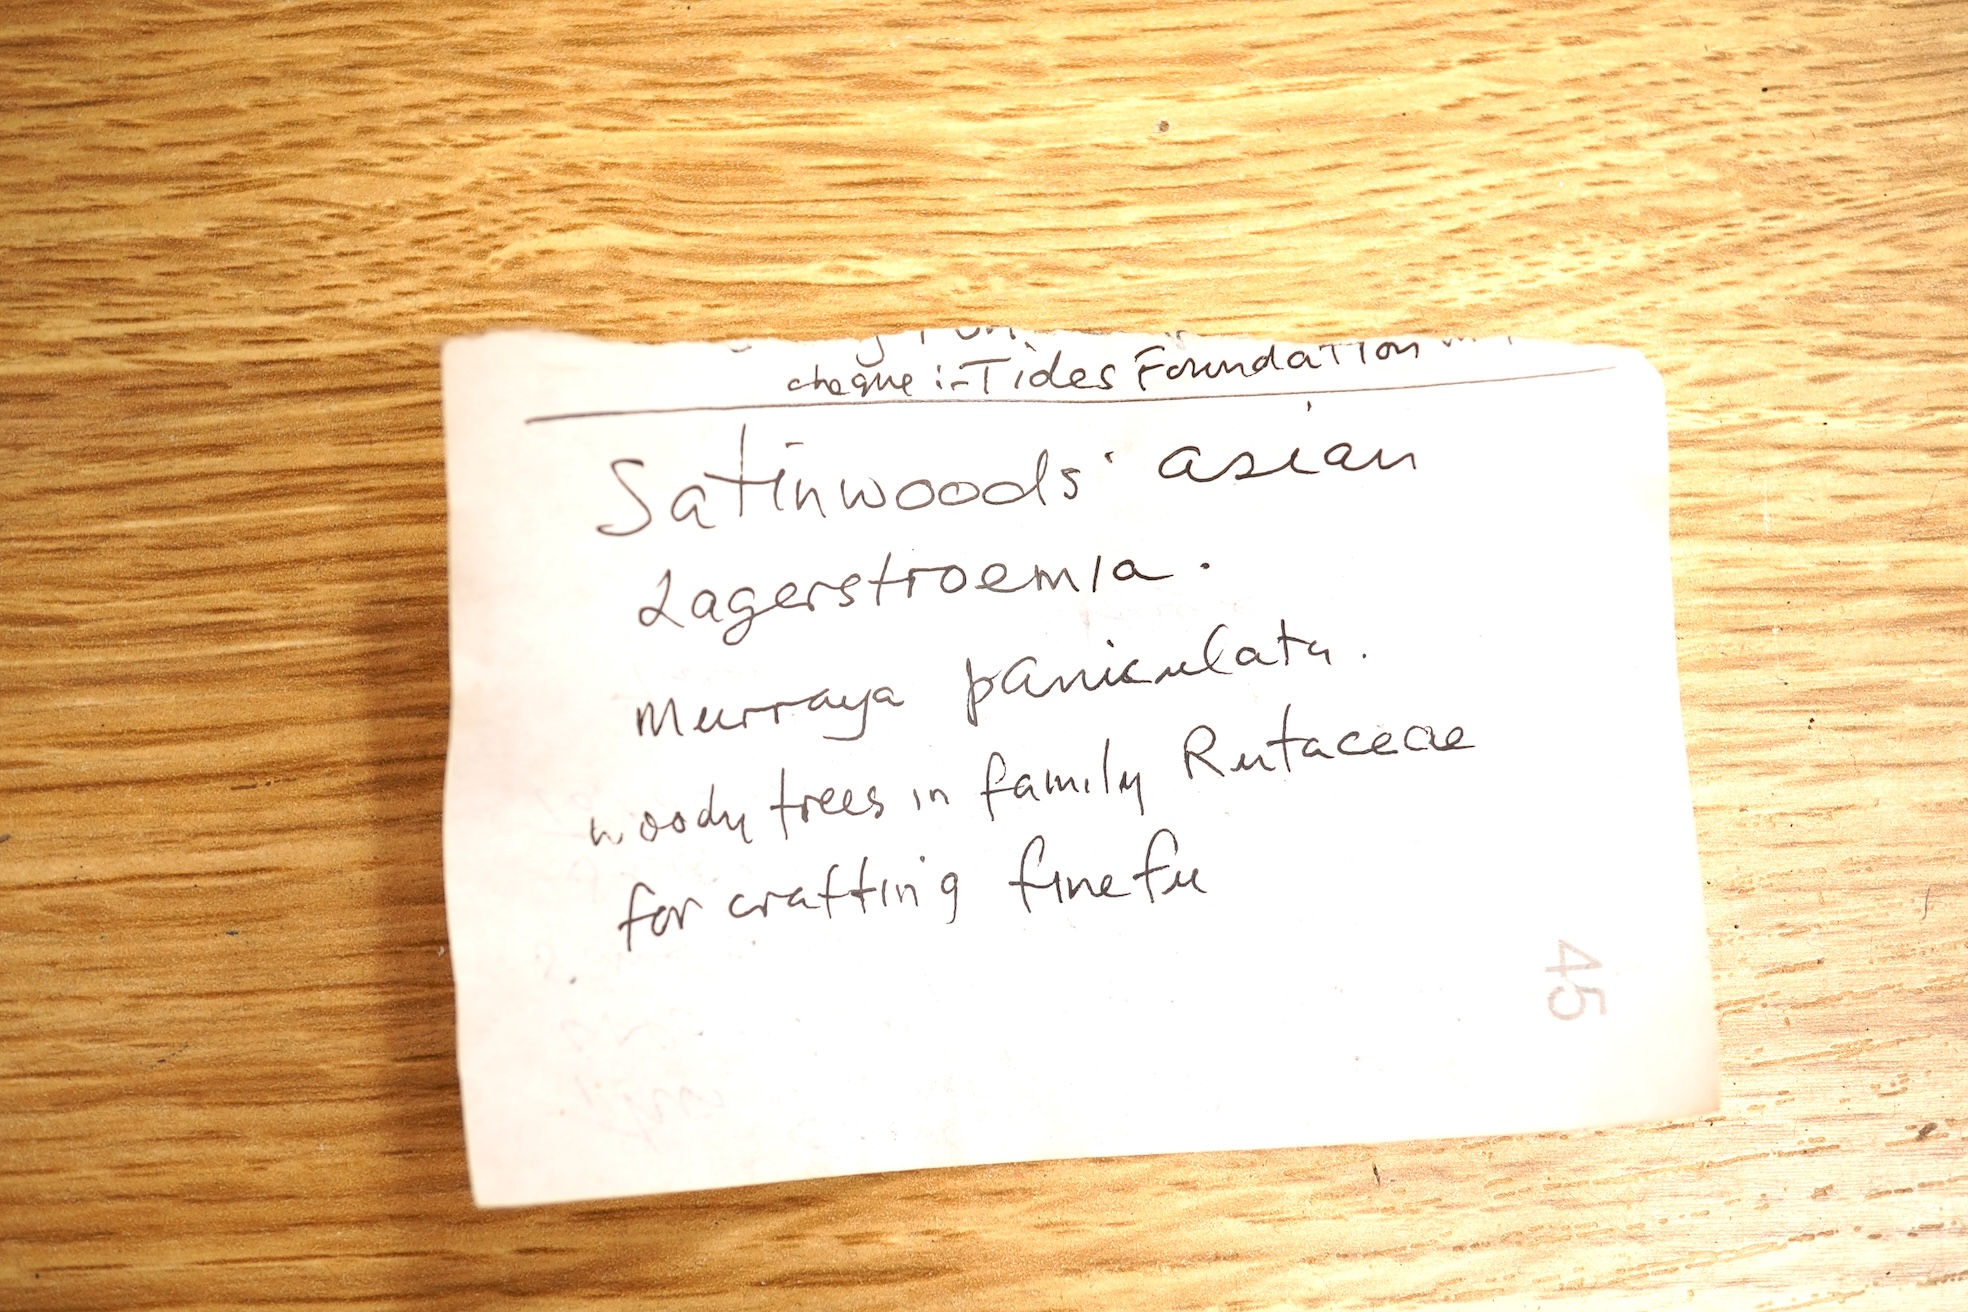 cheque :- Tides Foundation
Satinwoods · asian
Lagerstroemia.
Murraya paniculata.
woody trees in family Rutaceae
for crafting fine fu
45